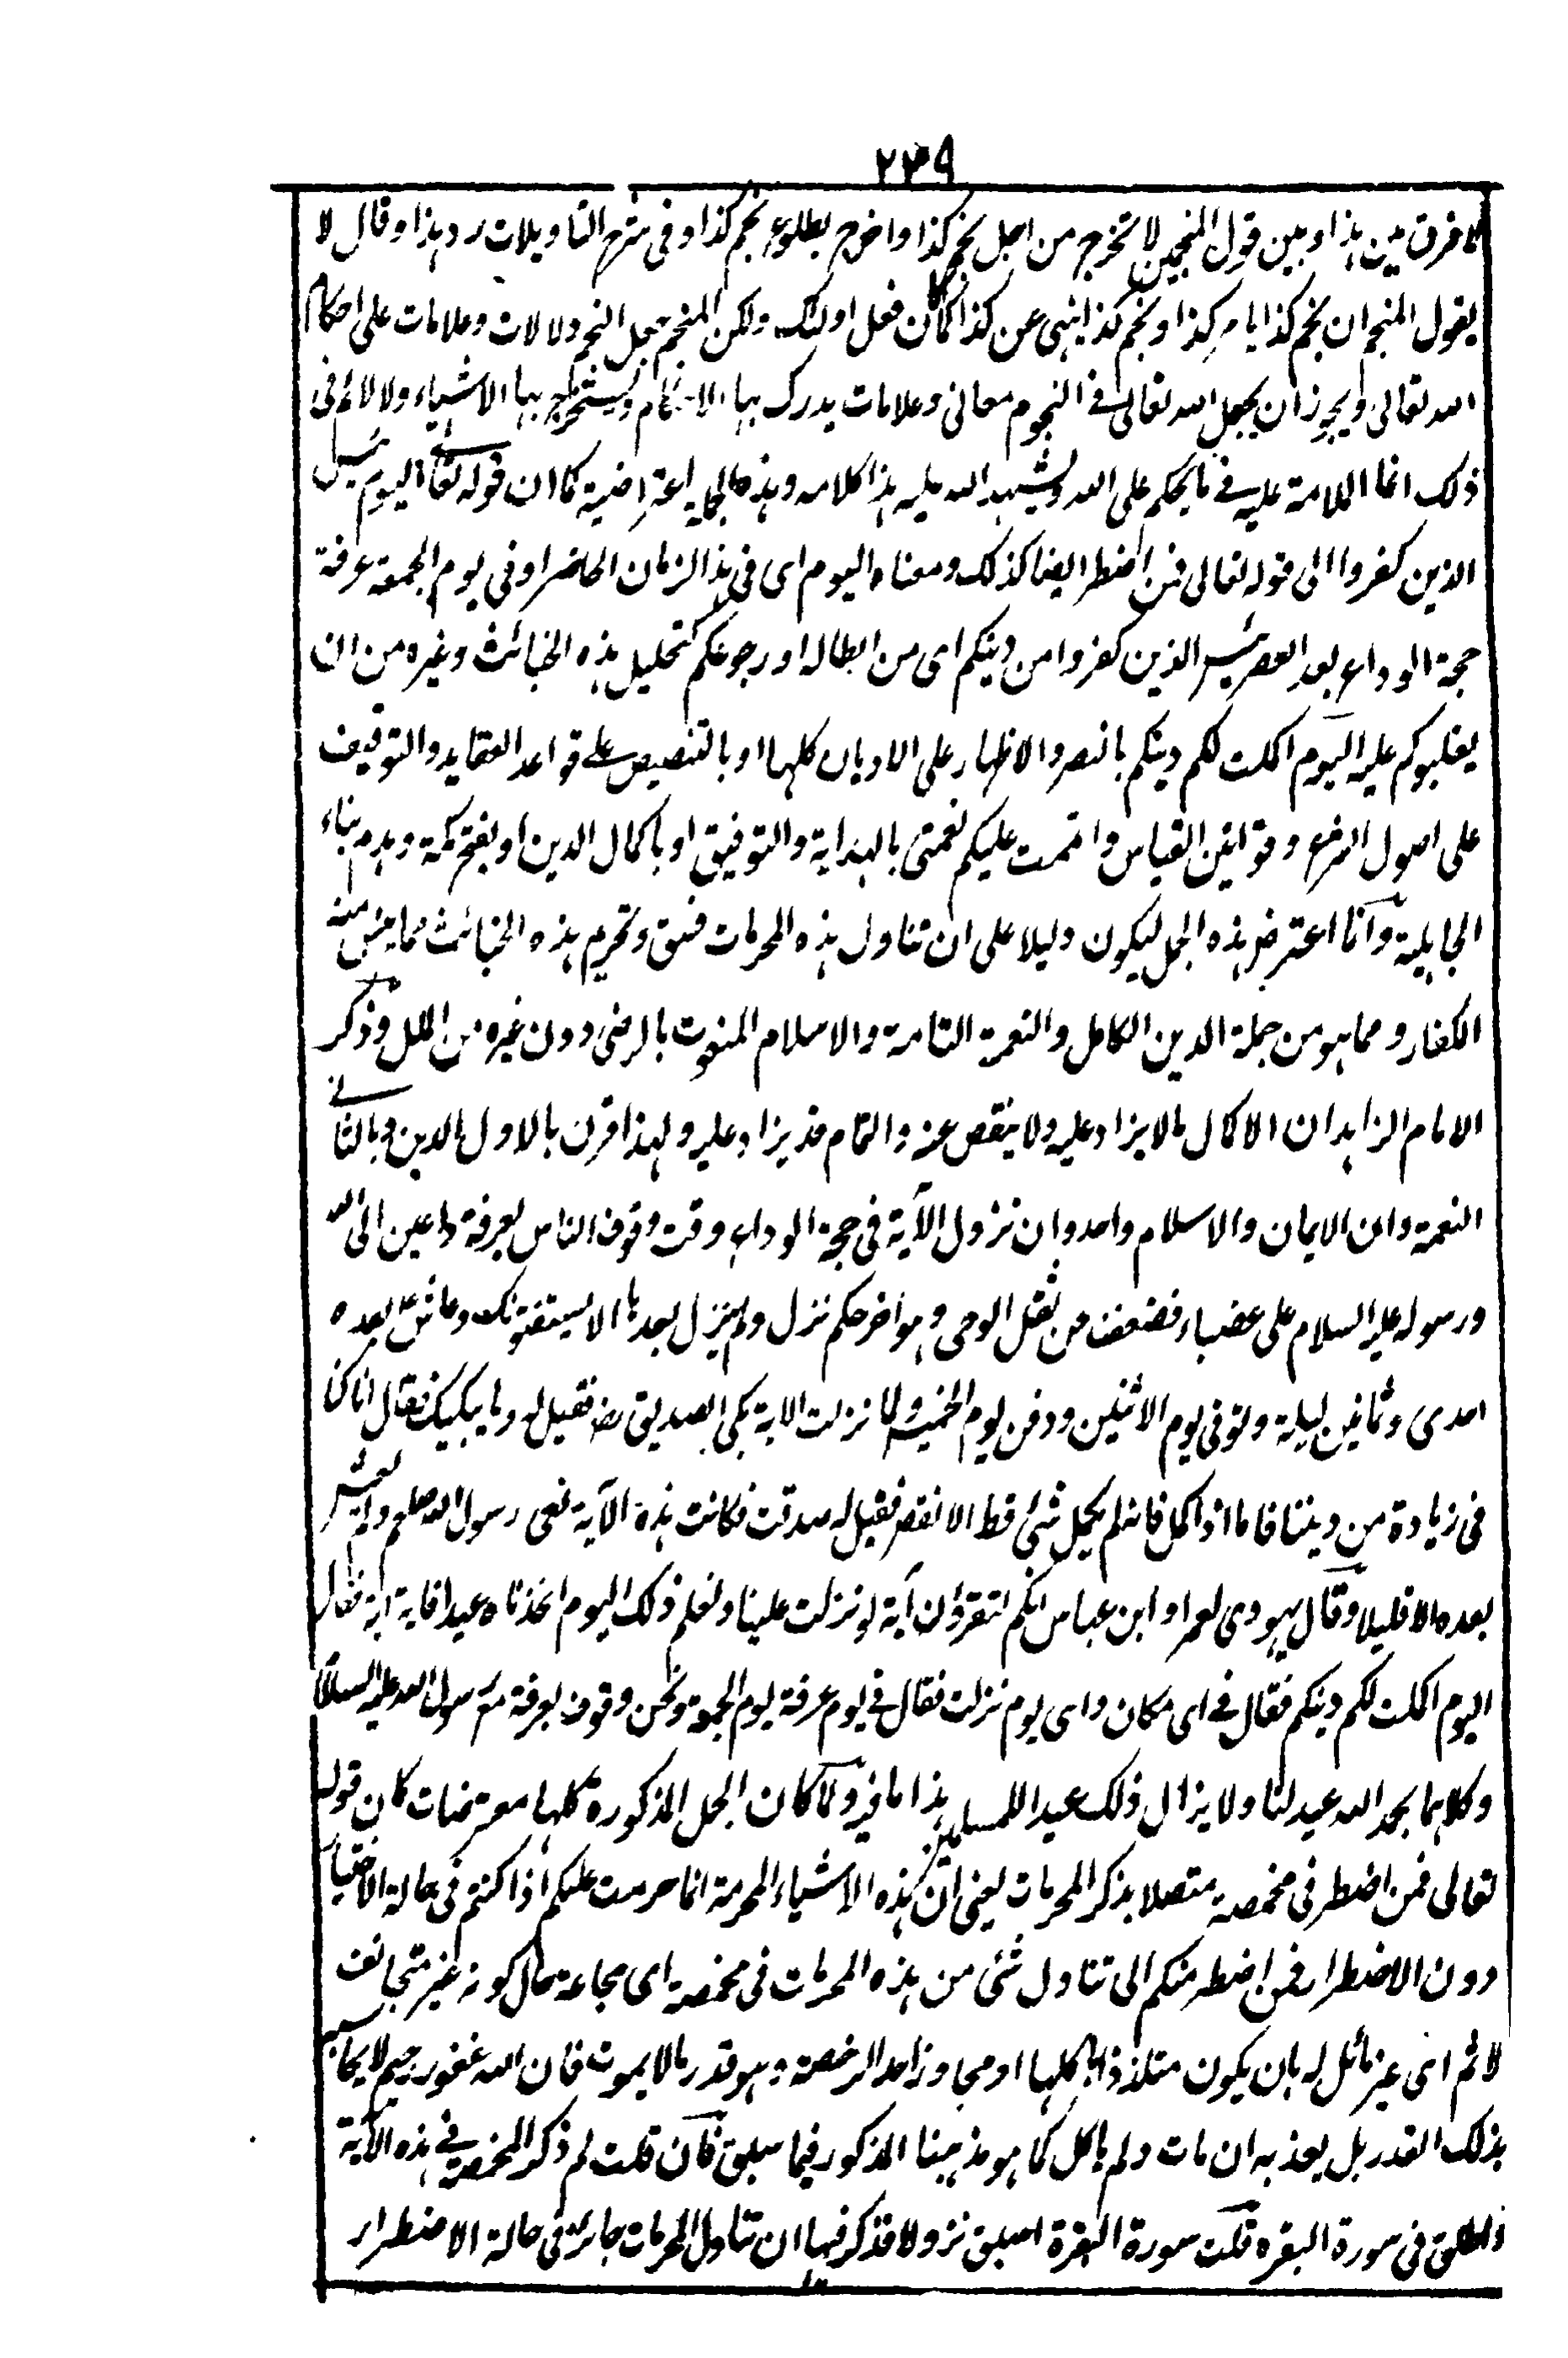 ٢٣٩
لا فرق بين هذا و بين قول المنجمين لا تخرج من اجل نجم كذا واخرج بطلوع نجم كذا و فى شرح التاويلات رد هذا و قال لا
يقول المنجم ان نجم كذا يامر كذا و نجم كذا ينهى عن كذا كما كان فعل اولئك ولكن المنجم جعل النجم دلالات و علامات على احكام
الله تعالى ويجوز ان يجعل الله تعالى فى النجوم معانى و علامات يدرك بها الاحكام ويستخرج بها الاشياء ولا لائمة فى
ذلك انما اللامة عليه فى ما يحكم على الله و يشهد الله عليه هذا كلامه و هذه الجملة اعتراضية كما ان قوله تعالى اليوم يئس
الذين كفروا الى قوله تعالى فمن اضطر ايضا كذلك و معناه اليوم اى فى هذا الزمان الحاضر او فى يوم الجمعة عرفة
حجة الوداع بعد العصر يئس الذين كفروا من دينكم اى من ابطاله او رجوعكم كتحليل هذه الخبائث وغيره من ان
يغلبوكم عليه اليوم اكملت لكم دينكم بالنصر والاظهار على الاديان كلها او بالتنصيص على قواعد العقايد والتوقيف
على اصول الشرع وقوانين القياس واتممت عليكم نعمتى بالهداية والتوفيق او باكمال الدين او بفتح مكة وهدم بناء
الجاهلية وانما اعترض هذه الجمل ليكون دليلا على ان تناول هذه المحرمات فسق وتحريم هذه الخبائث مما يئس منه
الكفار و مما هو من جملة الدين الكامل والنعمة التامة والاسلام المنعوت بالرضى دون غيره من الملل وذكر
الامام الزاهد ان الاكمال مالا يزاد عليه ولا ينقص عنه والتمام قد يزاد عليه ولهذا قرن بالاول الدين وبالثانى
النعمة وان الايمان والاسلام واحد وان نزول الآية فى حجة الوداع وقت وقوف الناس بعرفة داعين الى الله
ورسوله عليه السلام على عضباء فضعف من ثقل الوحى وهو اخر حكم نزل ولم ينزل بعدها الا يستفتونك وعاش ع بعده
احدى وثمانين ليلة وتوفى يوم الاثنين ودفن يوم الخميس ولما نزلت الاية بكى الصديق رضـ فقيل له وما يبكيك فقال انا كنا
فى زيادة من ديننا فاما اذا كمل فانه لم يكمل شئ قط الا نقص فقيل له صدقت فكانت هذه الآية نعى رسول الله صلعم ولم يعش
بعده الا قليلا وقال يهودى لعمر او ابن عباس انكم لتقرؤن آية لو نزلت علينا ونعلم ذلك اليوم اتخذناه عيدا فاية اية فقال
اليوم اكملت لكم دينكم فقال فى اى مكان واى يوم نزلت فقال فى يوم عرفة يوم الجمعة ونحن وقوف بعرفة مع رسول الله عليه السلام
وكلاهما بحمد الله عيد لنا ولا يزال ذلك عيدا للمسلمين هذا ما فيه ولما كان الجمل المذكورة كلها معترضات كان قوله
تعالى فمن اضطر فى مخمصة متصلا بذكر المحرمات يعنى ان هذه الاشياء المحرمة انما حرمت عليكم اذا كنتم فى حالة الاختيار
دون الاضطرار فمن اضطر منكم الى تناول شئ من هذه المحرمات فى مخمصة اى مجاعة حال كونه غير متجانف
لاثم اى غير مائل له بان يكون متلذذا باكلها او مجاوزا حد الرخصة وهو قدر مالا يموت فان الله غفور رحيم لا يحاسب
بذلك القدر بل يعذبه ان مات ولم ياكل كما هو مذهبنا المذكور فيما سبق فان قلت لم ذكر المخمصة فى هذه الآية
واطلق فى سورة البقرة قلت سورة البقرة اسبق نزولا فذكر فيها ان تناول المحرمات جائز فى حالة الاضطرار